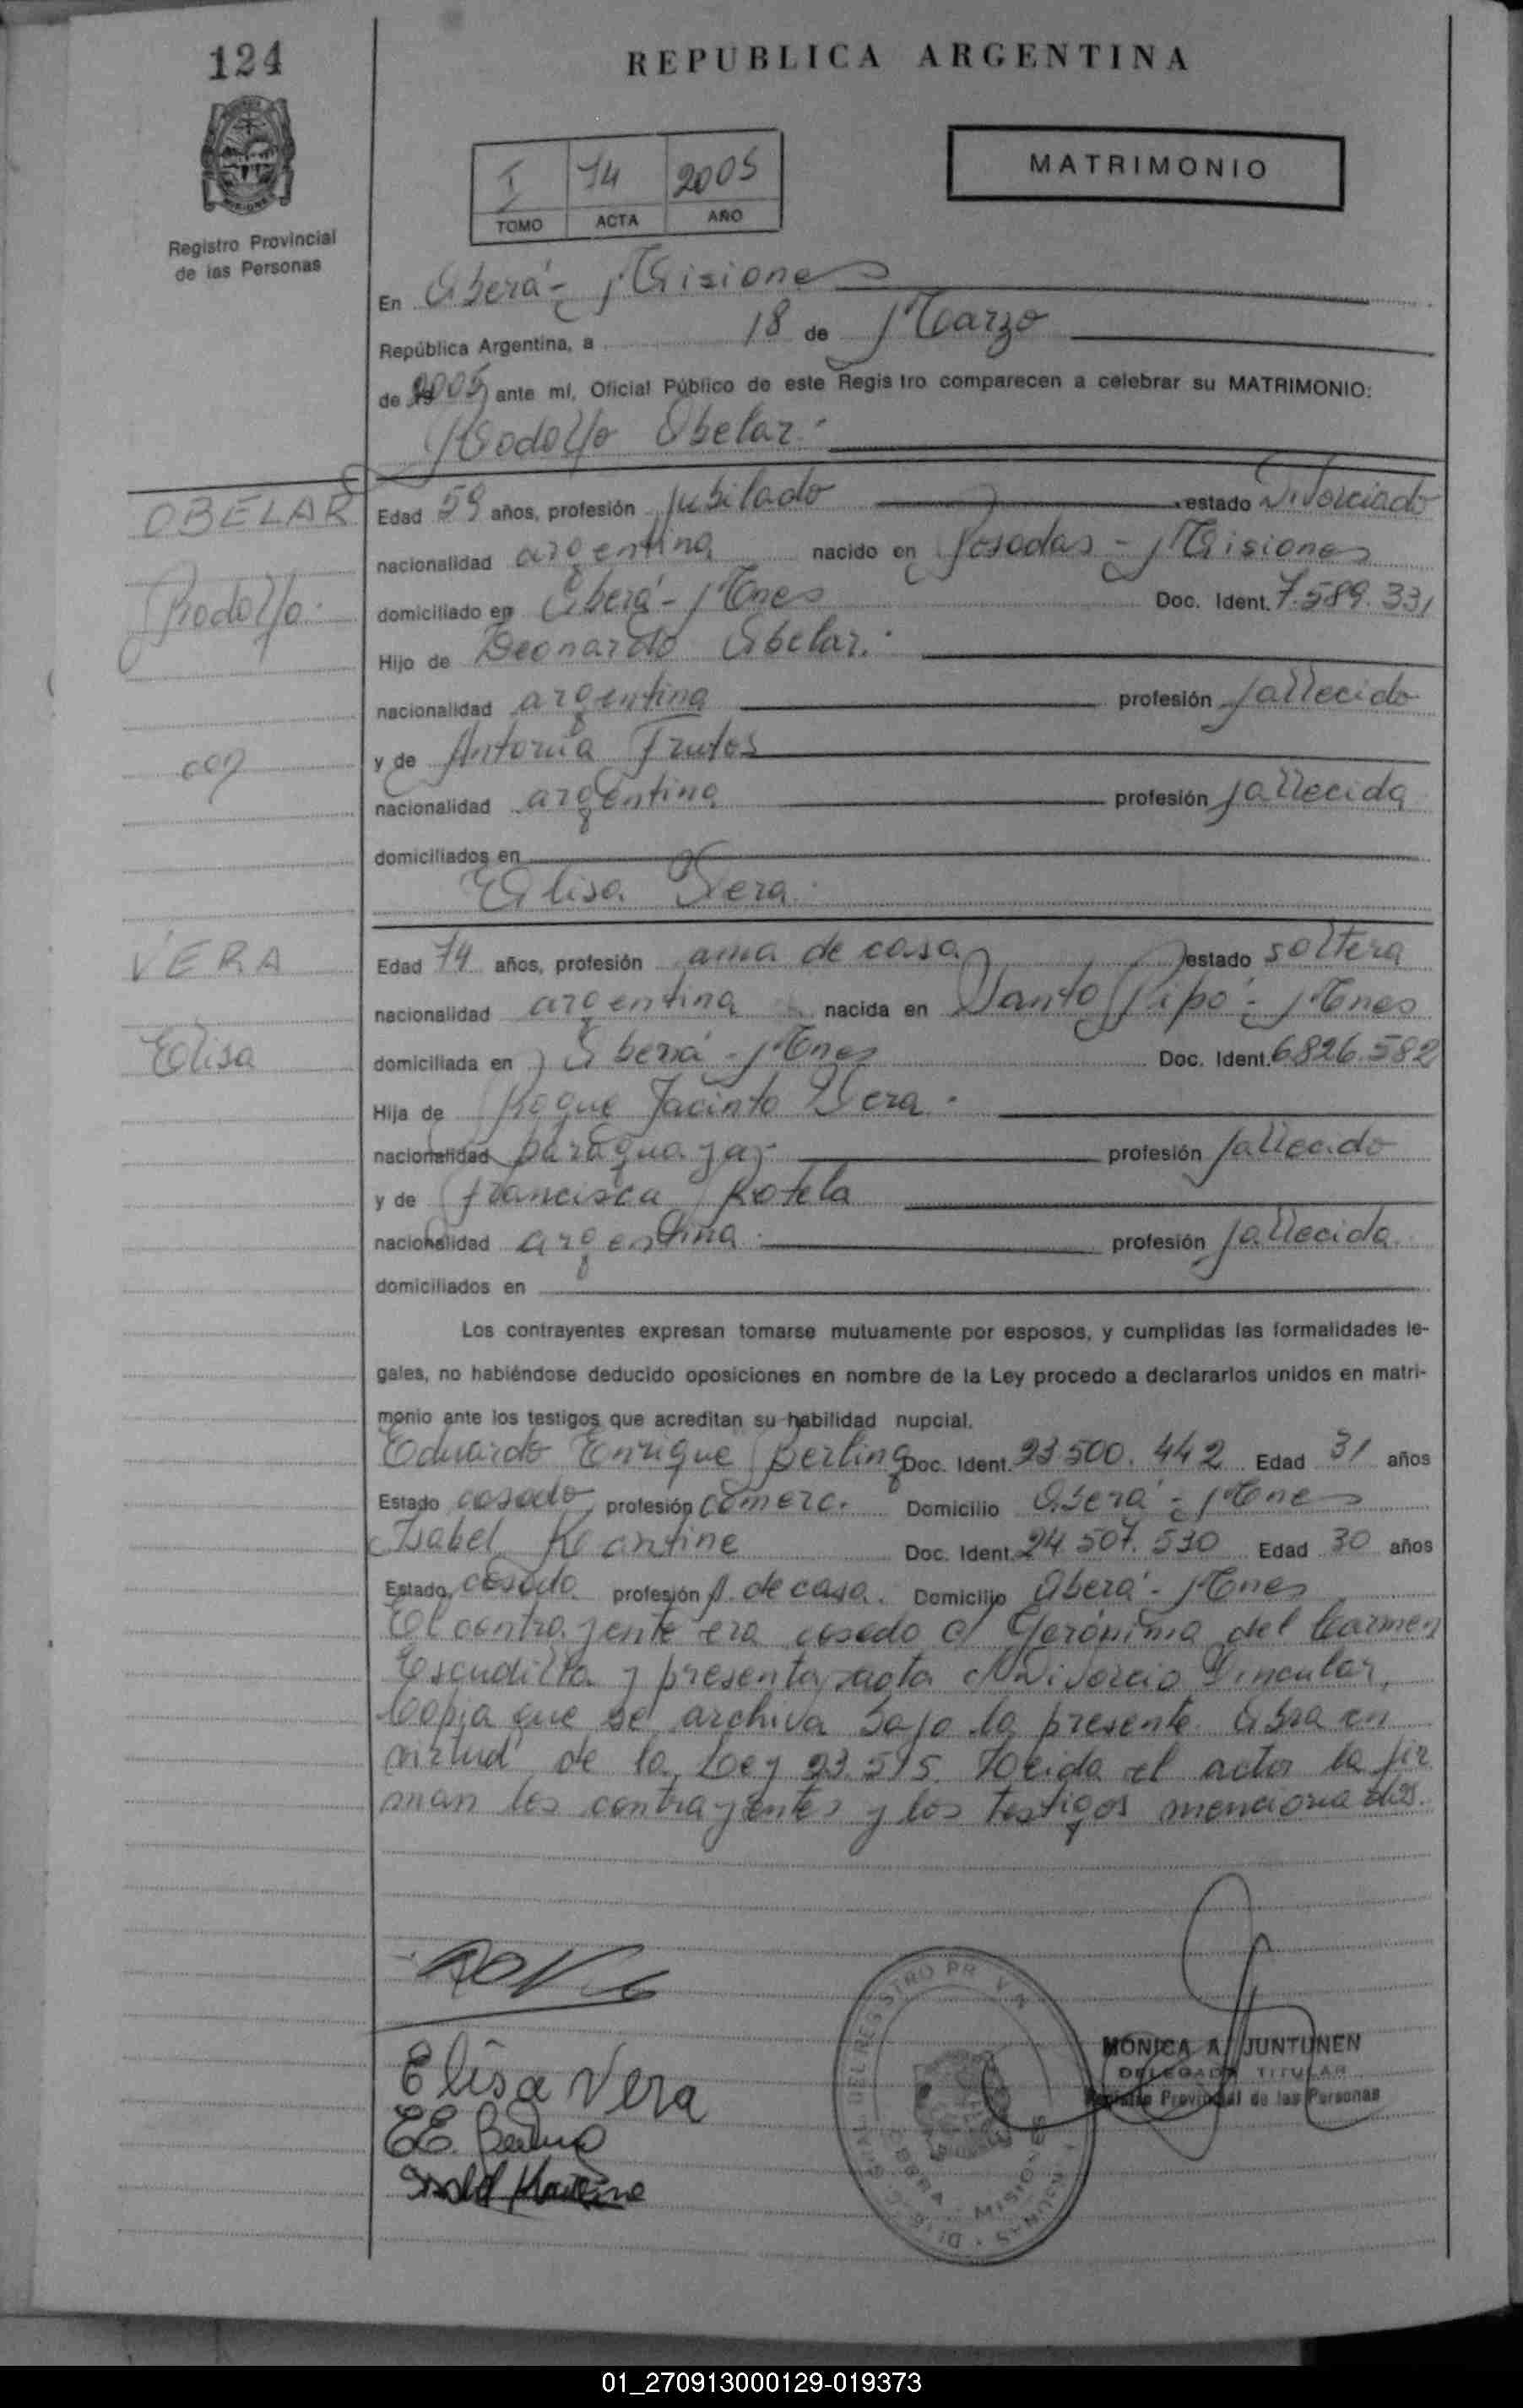 124
REPUBLICA ARGENTINA
Registro Provincial
de las Personas
I 74 2005
TOMO ACTA AÑO
MATRIMONIO
En Oberá - Misiones
República Argentina, a 18 de Marzo
de 2005 ante mí, Oficial Público de este Registro comparecen a celebrar su MATRIMONIO:
Rodolfo Obelar.
OBELAR
Rodolfo.
con
VERA
Elisa
Edad 59 años, profesión Jubilado estado Divorciado
nacionalidad argentina nacido en Posadas - Misiones
domiciliado en Oberá - Mnes Doc. Ident. 7.589.331
Hijo de Leonardo Obelar.
nacionalidad argentina profesión fallecido
y de Antonia Frutos
nacionalidad argentina profesión fallecida
domiciliados en
Elisa Vera.
Edad 74 años, profesión ama de casa estado soltera
nacionalidad argentina nacida en Santo Pipó - Mnes
domiciliada en Oberá - Mnes Doc. Ident. 6.826.582
Hija de Roque Jacinto Vera.
nacionalidad paraguaya profesión fallecido
y de Francisca Rotela
nacionalidad argentina. profesión fallecida.
domiciliados en
Los contrayentes expresan tomarse mutuamente por esposos, y cumplidas las formalidades le-
gales, no habiéndose deducido oposiciones en nombre de la Ley procedo a declararlos unidos en matri-
monio ante los testigos que acreditan su habilidad nupcial.
Eduardo Enrique Berling Doc. Ident. 23.500.442 Edad 31 años
Estado casado profesión comerc. Domicilio Oberá - Mnes
Isabel Doc. Ident. 24.507.530 Edad 30 años
Estado casada profesión A. de casa. Domicilio Oberá - Mnes
El contrayente era casado c/ Gerónima del Carmen
Escudilla y presenta acta c/ Divorcio Vincular,
Copia que se archiva bajo la presente. Obra en
virtud de la Ley 23.515. Leída el acta la fir
man los contrayentes y los testigos mencionados.
Elisa Vera
MONICA A. JUNTUNEN
DELEGADA TITULAR
Registro Provincial de las Personas
OBERA - MISIONES
01_270913000129-019373